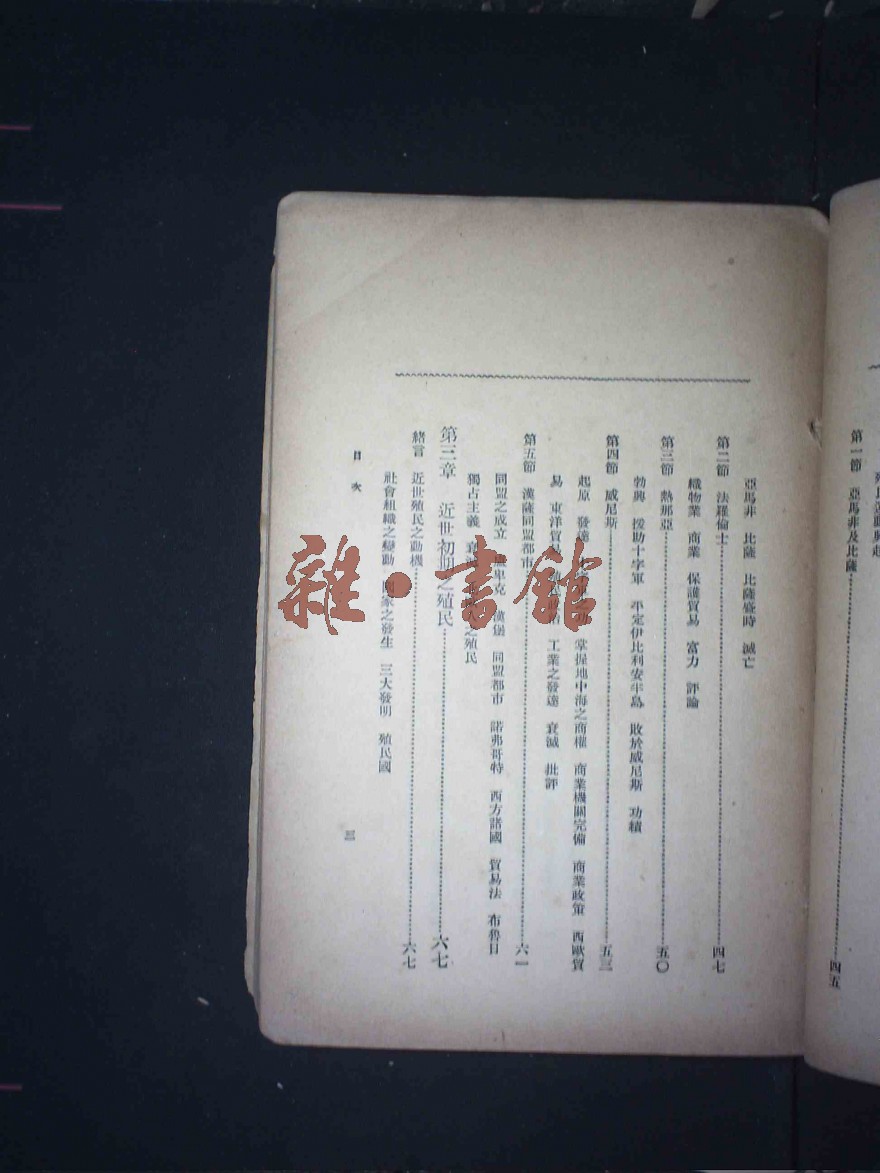 第一節 亞馬非及比薩 四五
亞馬非 比薩 比薩盛時 滅亡
第二節 法羅倫士 四七
織物業 商業 保護貿易 富力 評論
第三節 熱那亞 五〇
勃興 援助十字軍 平定伊比利安半島 敗於威尼斯 功績
第四節 威尼斯 五三
起原 發達 掌握地中海之商權 商業機關完備 商業政策 西歐貿
易 東洋貿易 工業之發達 衰滅 批評
第五節 漢薩同盟都市 六一
同盟之成立 卑克 漢堡 同盟都市 諾弗哥特 西方諸國 貿易法 布魯日
獨占主義 之殖民
第三章 近世初期之殖民 六七
緒言 近世殖民之動機 六七
社會組織之變動 國家之發生 三大發明 殖民國
目次
三
雜·書館